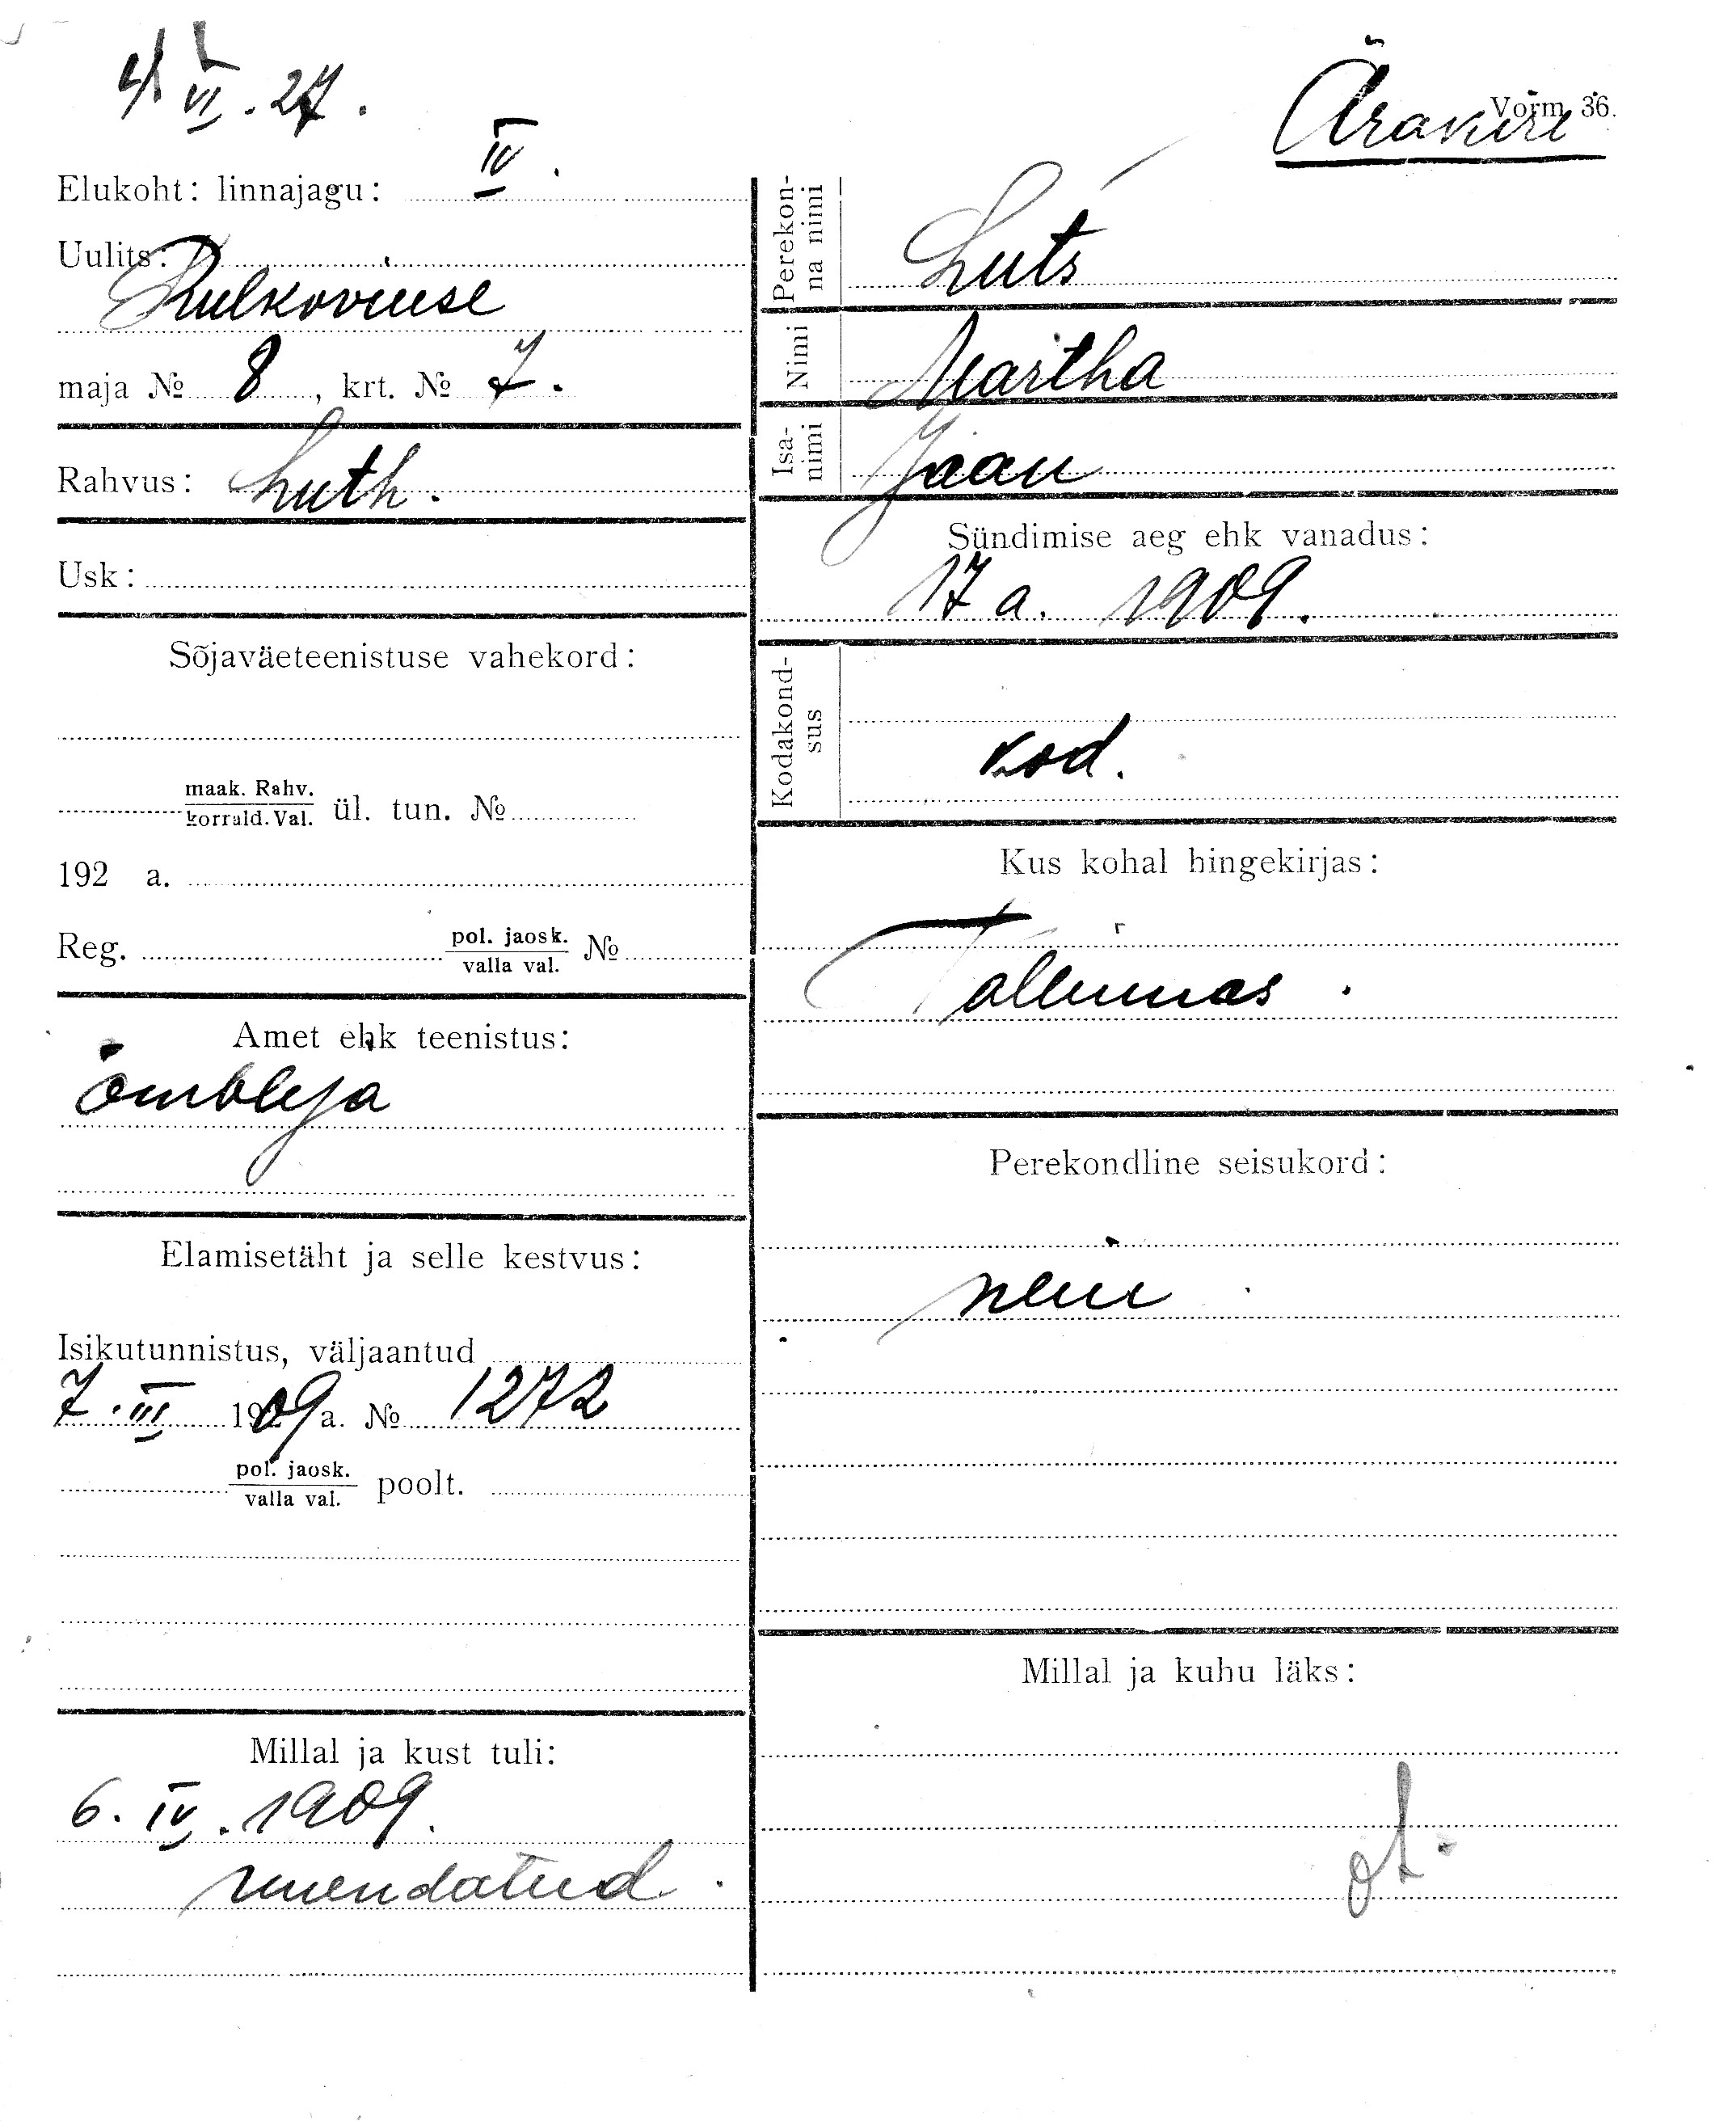 4. VI. 27.
Ärakiri
Vorm 36.
Elukoht: linnajagu: IV.
Uulits:
Kulkoviuse
maja № 8, krt. № 7.
Rahvus: Luth.
Usk:
Sõjaväeteenistuse vahekord:
maak. Rahv.
korrald. Val. ül. tun. №
192 a.
Reg. pol. jaosk.
valla val. №
Amet ehk teenistus:
õmbleja
Elamisetäht ja selle kestvus:
Isikutunnistus, väljaantud
7. III 1909 a. № 1272
pol. jaosk.
valla val. poolt.
Millal ja kust tuli:
6. IV. 1909.
uuendatud.
Perekon-
na nimi
Luts
Nimi
Martha
Isa-
nimi
Jaan
Sündimise aeg ehk vanadus:
17 a. 1909.
Kodakond-
sus
kod.
Kus kohal hingekirjas:
Tallinnas.
Perekondline seisukord:
neiu
Millal ja kuhu läks: